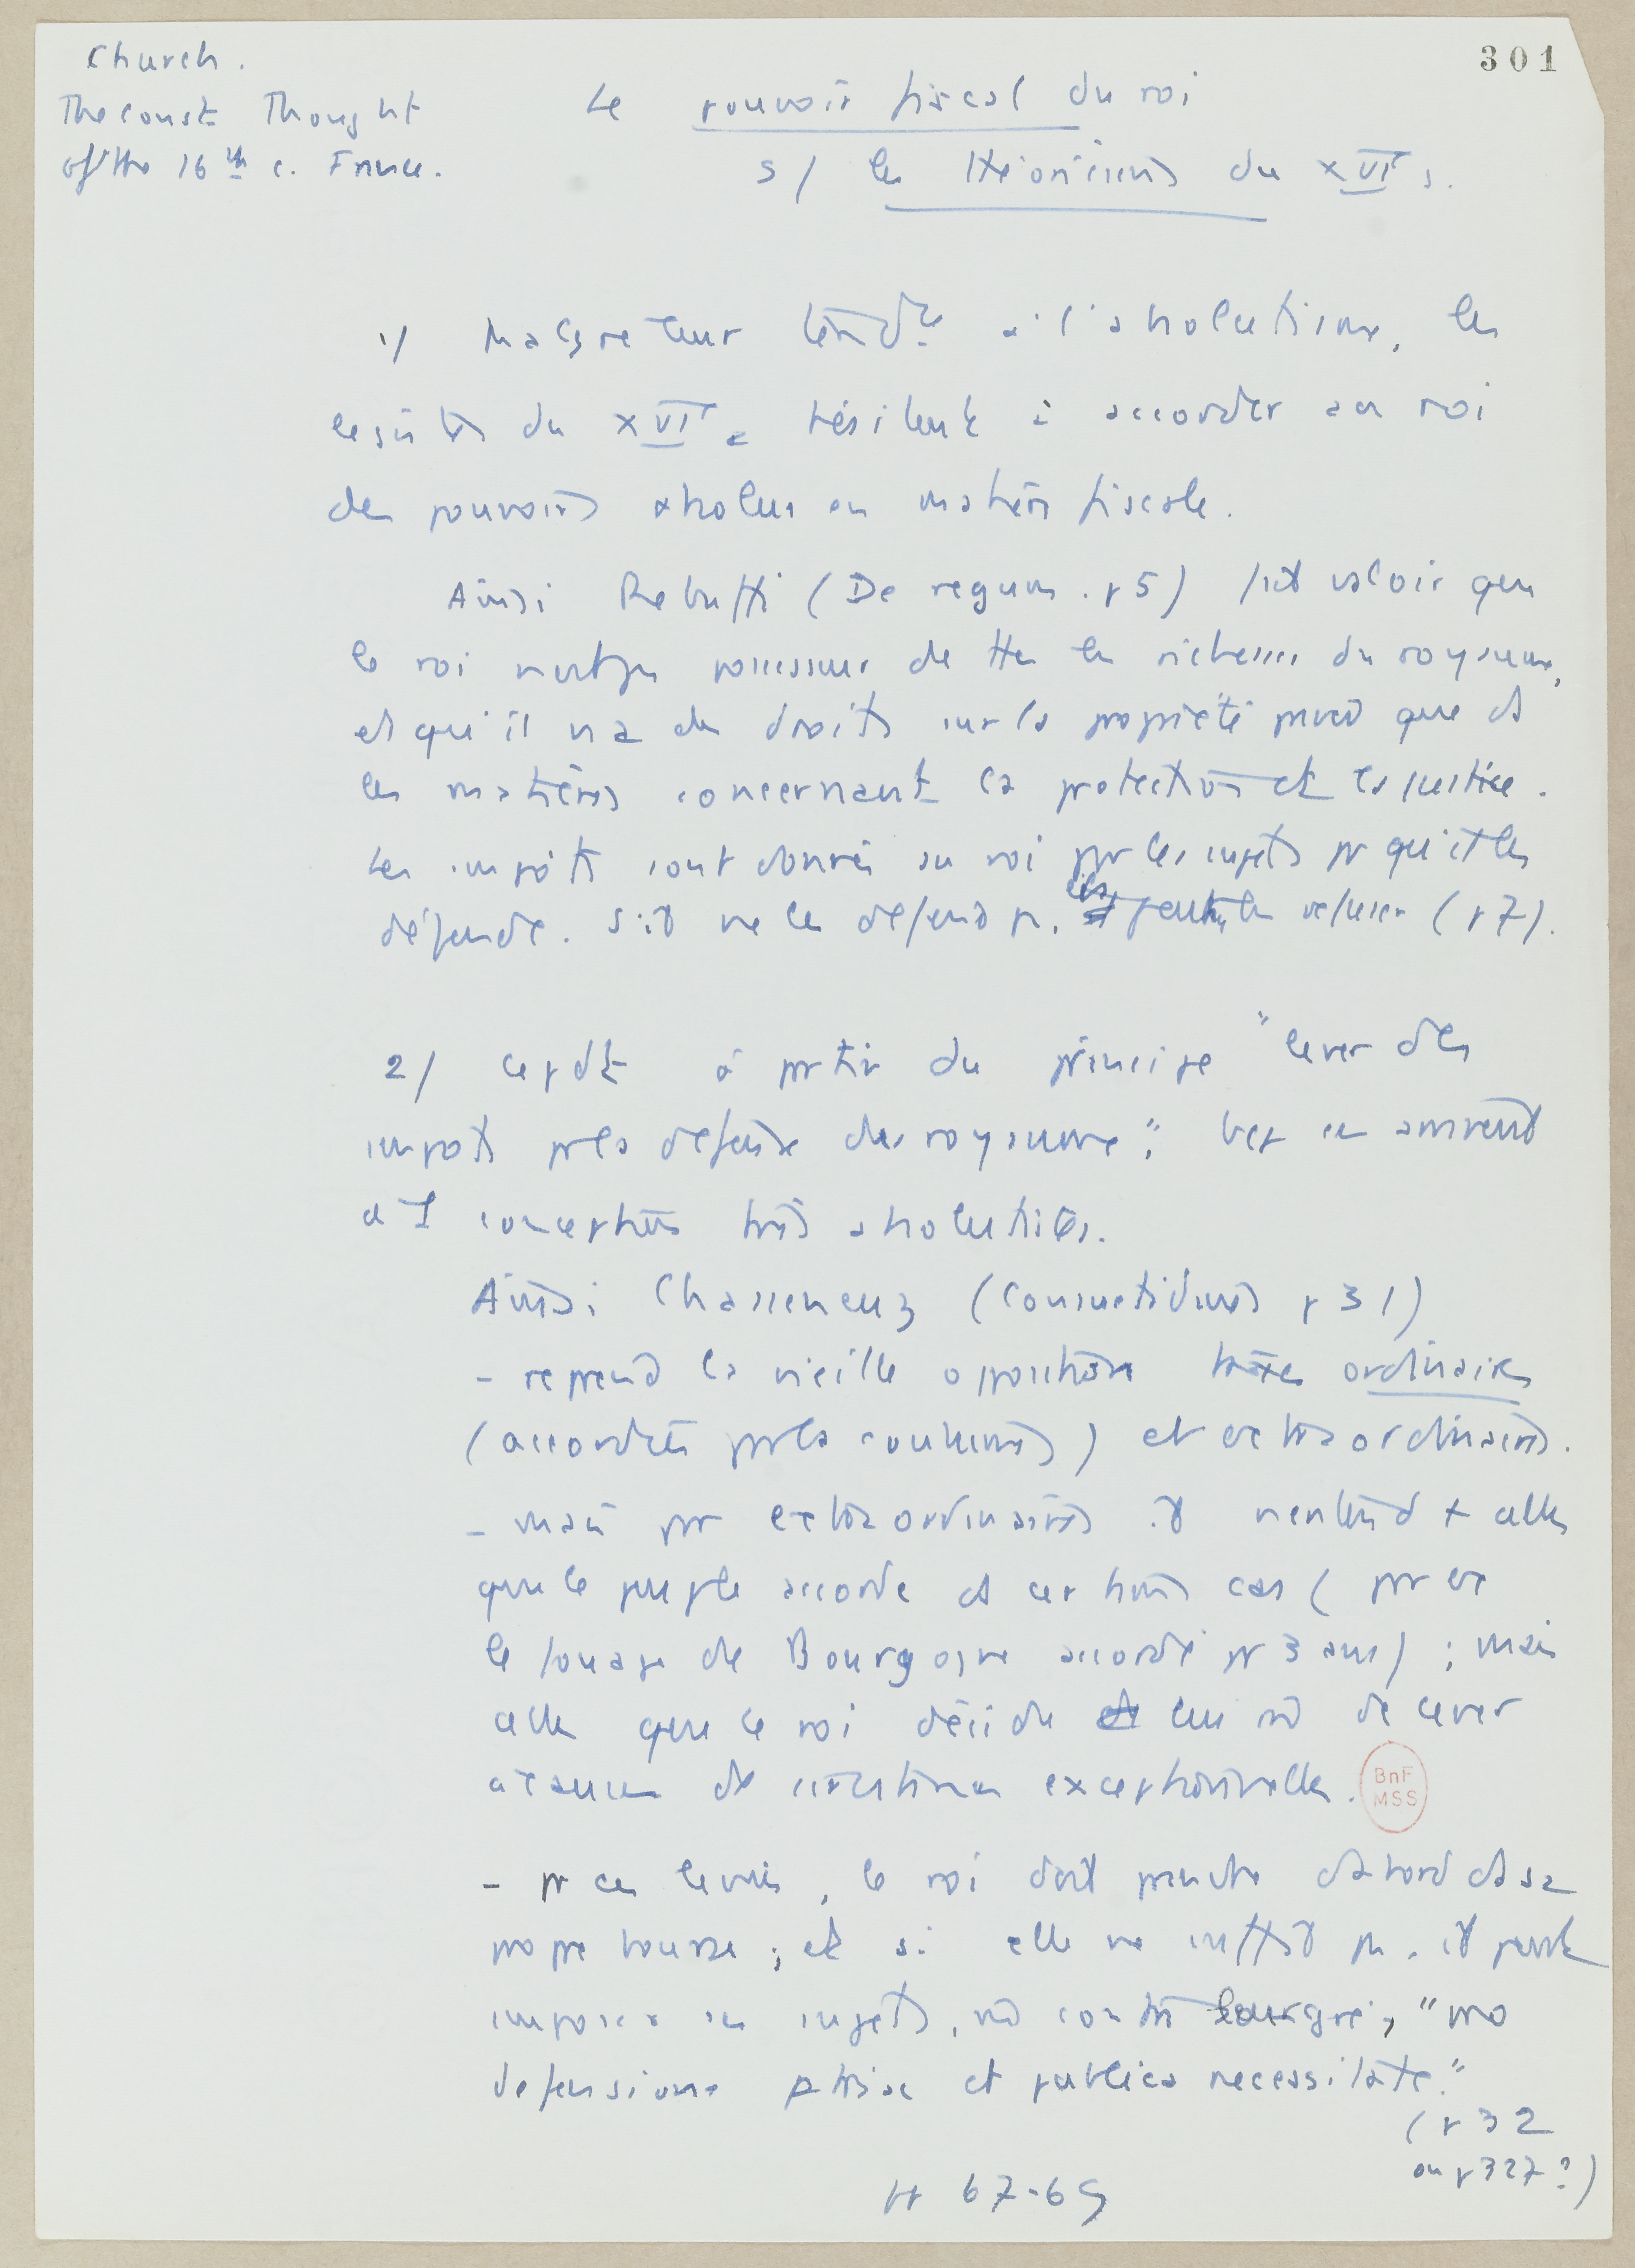 301
Church.
The Const Thought
of the 16th c. France.
Le pouvoir fiscal du roi
s/ les théoriciens du XVIe s.
1/ Malgré leur tendce à l'absolutisme, les
légistes du XVIe s hésitent à accorder au roi
des pouvoirs absolus en matière fiscale.
Ainsi Rebuffi (De regum. p 5) fait valoir que
le roi n'est pas possesseur de ttes les richesses du royaume,
et qu'il n'a de droits sur la propriété privée que ds
les matières concernant la protection et la justice.
Les impôts sont donnés au roi par les sujets pr qu'il les
défende. S'il ne les défend pas, ils peuvent les refuser (p 7).
2/ Cepdt à partir du principe "lever des
impôts pr la défense du royaume", bcp en arrivent
à 1 conception très absolutiste.
Ainsi Chasseneuz (Consuetudines p 31)
- reprend la vieille opposition taxes ordinaires
(accordées par la coutume) et extraordinaires.
- mais par extraordinaires il n'entend + celles
que le peuple accorde ds certains cas (par ex
le fouage de Bourgogne accordé pr 3 ans) ; mais
celles que le roi décide de lever
à cause de circonstances exceptionnelles.
BnF
MSS
- pr ces levées, le roi doit prendre d'abord ds sa
propre bourse ; et si elle ne suffit pas, il peut
imposer ses sujets, même contre leur gré, "pro
defensione patriae et publica necessitate."
(p 32
ou p 327 ?)
pp 67-69